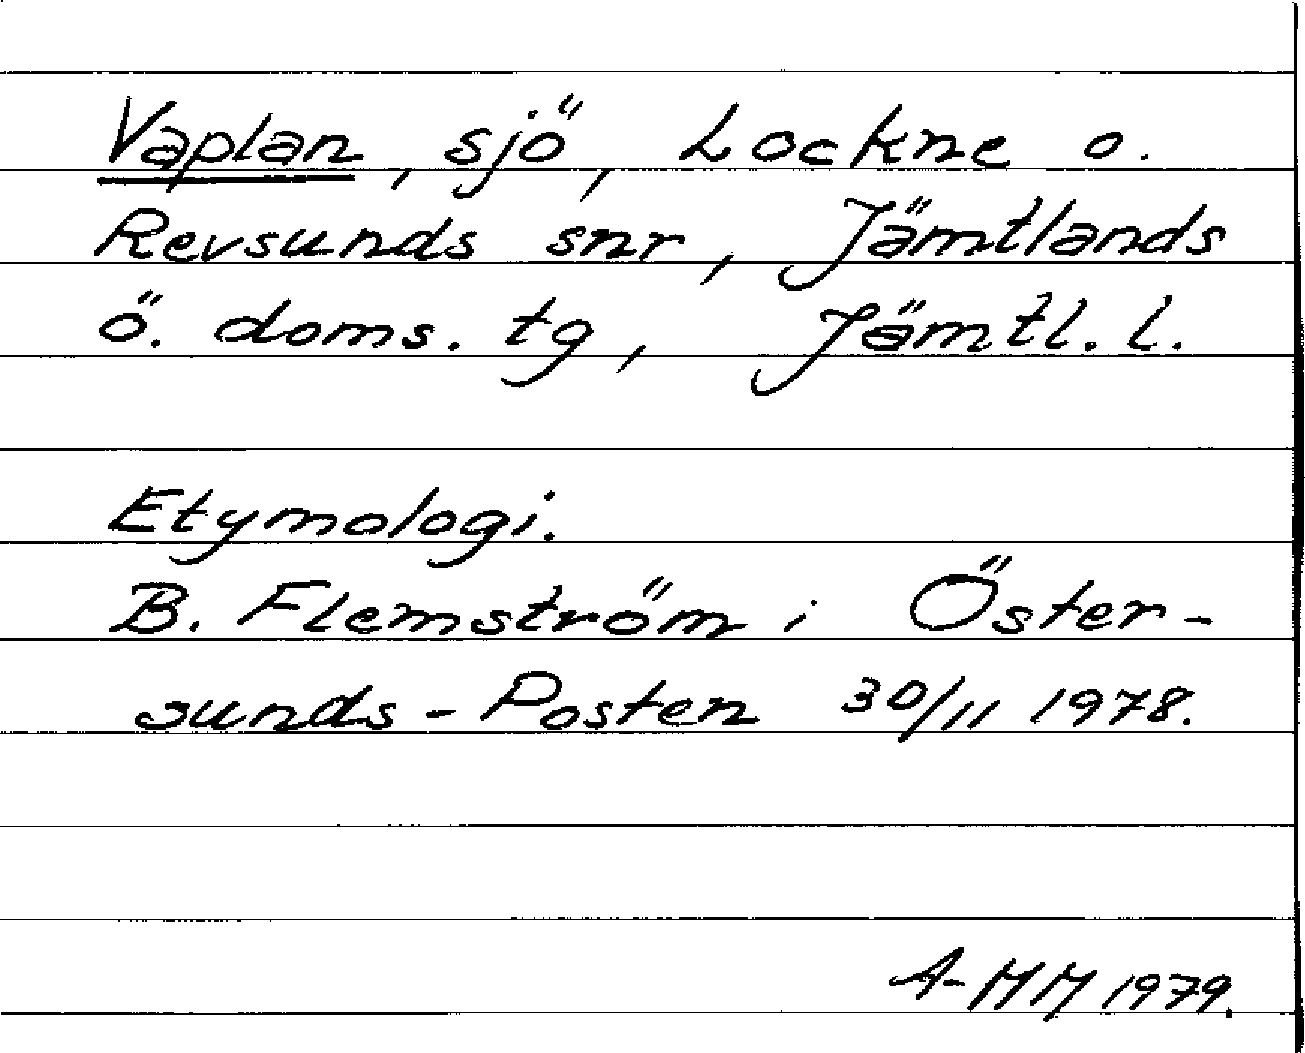 Vaplan, sjö, Lockne o.
Revsunds snr, Jämtlands
ö. doms. tg, Jämtl. l.
Etymologi.
B. Flemström i Öster-
sunds-Posten 30/11 1978.
A-MM 1979.